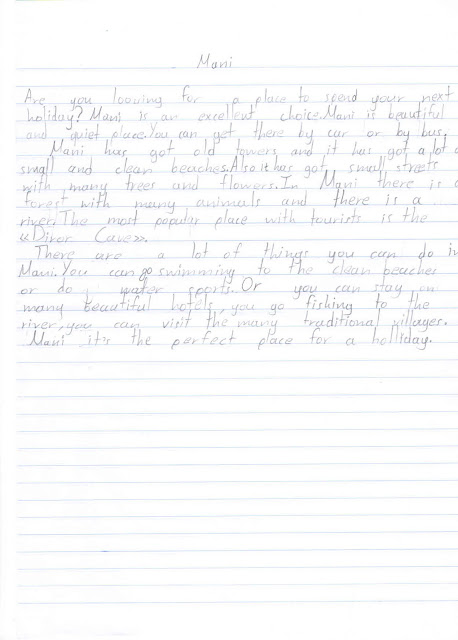 Mani
Are you looving for a place to spend your next
holiday? Mani is an excellent choice.Mani is beautiful
and quiet place.You can get there by car or by bus.
Mani has got old towers and it has got a lot
small and clean beaches.Also it has got small streets
with many trees and flowers.In Mani there is a
forest with many animals and there is a
river.The most popular place with tourists is the
«Diror Cave».
There are a lot of things you can do in
Mani.You can go swimming to the clean beaches
or do water sports. Or you can stay on
many beautiful hotels, you go fishing to the
river, you can visit the many traditional villages.
Mani it's the perfect place for a holliday.